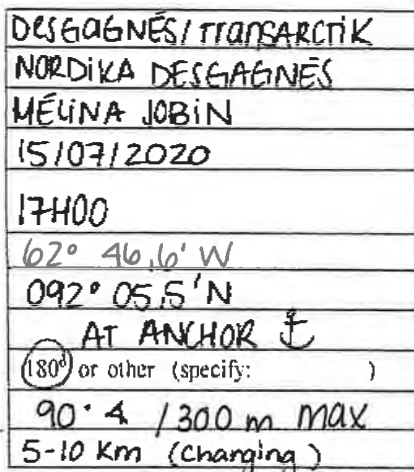 DESGAGNÉS/TRANSARCTIK
NORDIKA DESGAGNÉS
MÉLINA JOBIN
15/07/2020
17H00
62° 46,6' W
092° 05,5' N
AT ANCHOR ⚓
180° or other (specify: )
90° 4 /300 m max
5-10 Km (changing)